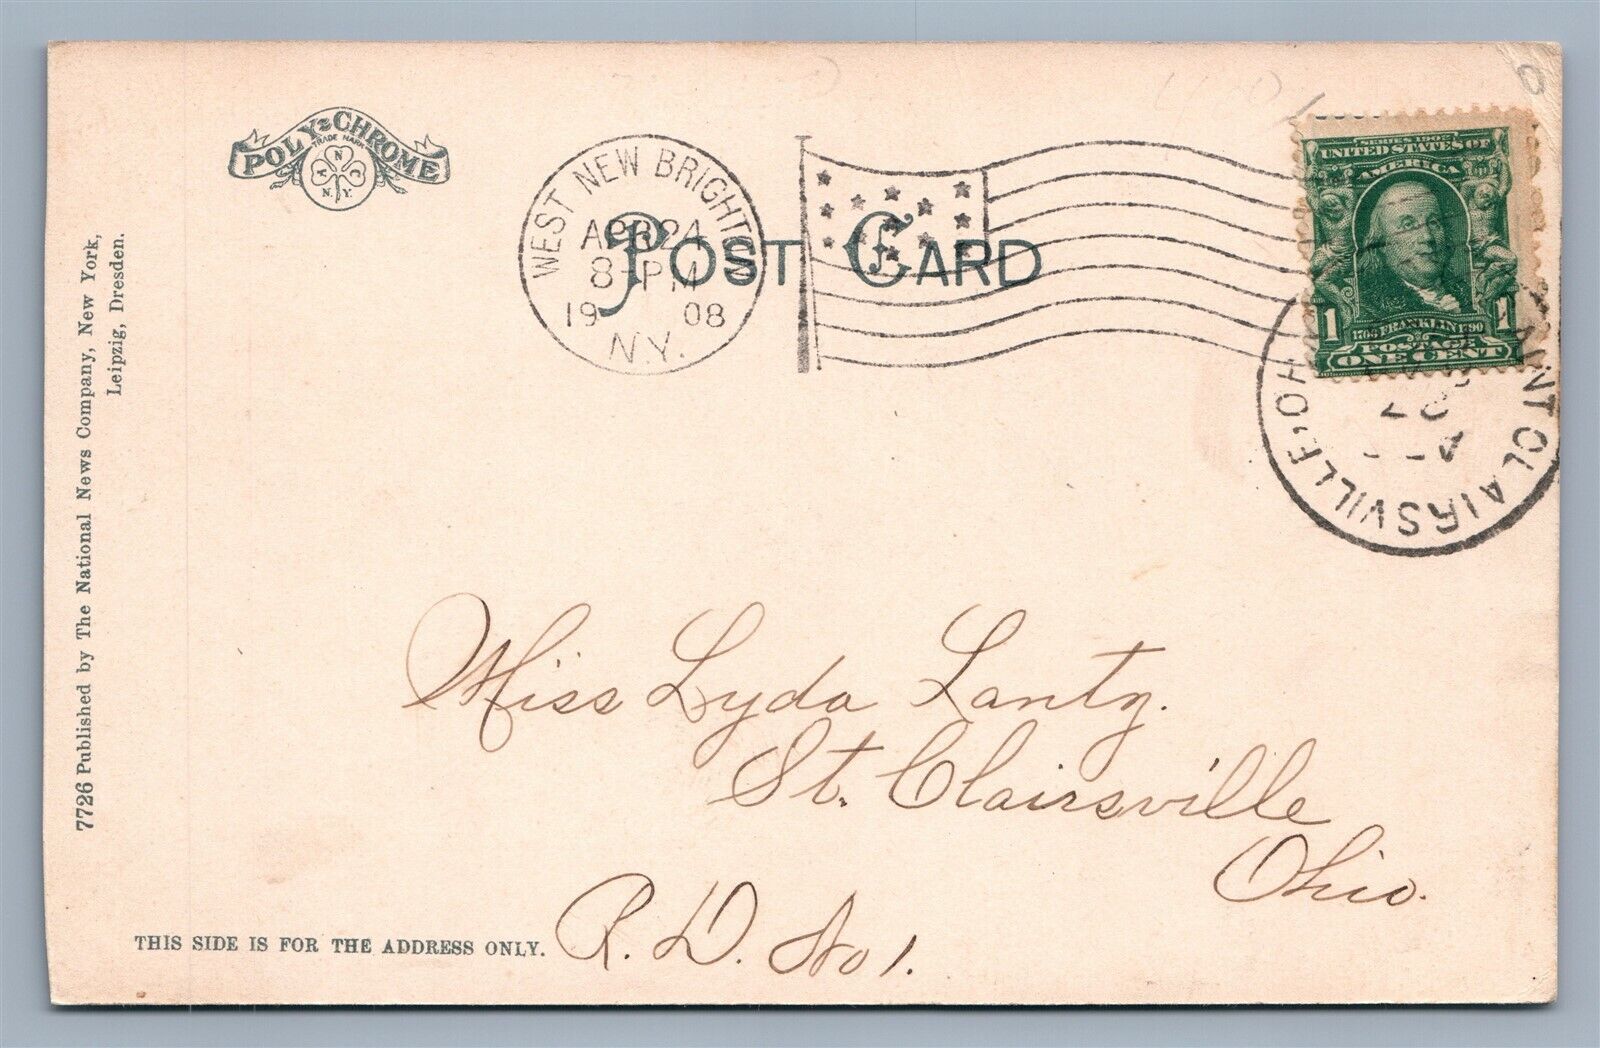 POLY-CHROME
TRADE MARK
N
A C
N.Y.
WEST NEW BRIGHTON
APR 24
8-PM
1908
N.Y.
POST CARD
SERIES 1902
UNITED STATES OF
AMERICA
1 1
1706 FRANKLIN 1790
POSTAGE
ONE CENT
SAINT CLAIRSVILLE, OHIO
27
7726 Published by The National News Company, New York,
Leipzig, Dresden.
Miss Lyda Lantz.
St. Clairsville
Ohio.
R. D. No 1.
THIS SIDE IS FOR THE ADDRESS ONLY.